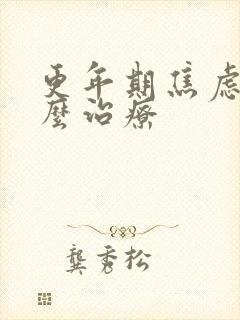 更年期焦虑
麼治療
龔秀松